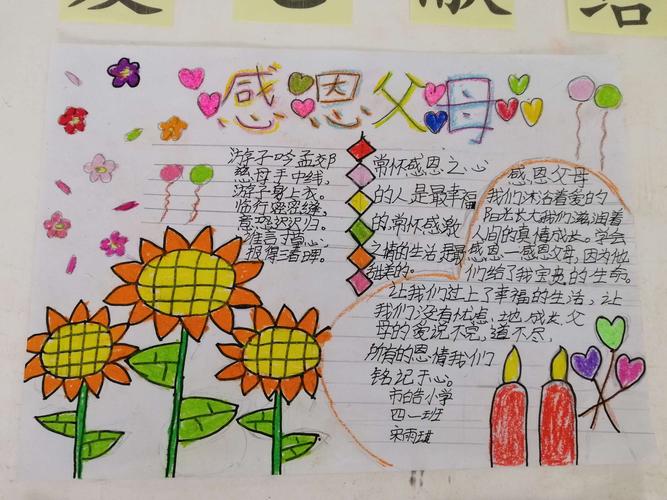 献给
感恩父母
游子吟 孟郊
慈母手中线,
游子身上衣。
临行密密缝,
意恐迟迟归。
谁言寸草心,
报得三春晖。
常怀感恩之心
的人是最幸福
的.常怀感激
之情的生活是最
甜美的。
感恩父母
我们沐浴着爱的
阳光长大我们滋润着
人间的真情成长。学会
感恩—感恩父母,因为他
们给了我宝贵的生命。
让我们过上了幸福的生活,让
我们没有忧虑 地 成长 父
母的爱说不完,道不尽,
所有的恩情我们
铭记于心。
小学
四一班
宋雨琪